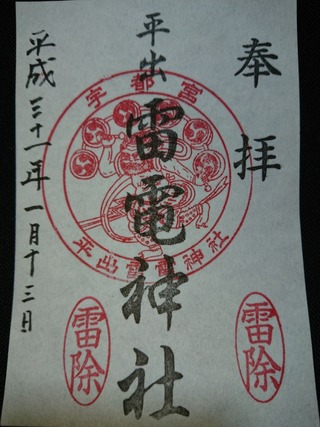 奉拝
平出雷電神社
平成三十一年一月十三日
宇都宮
平出雷電神社
雷除
雷除